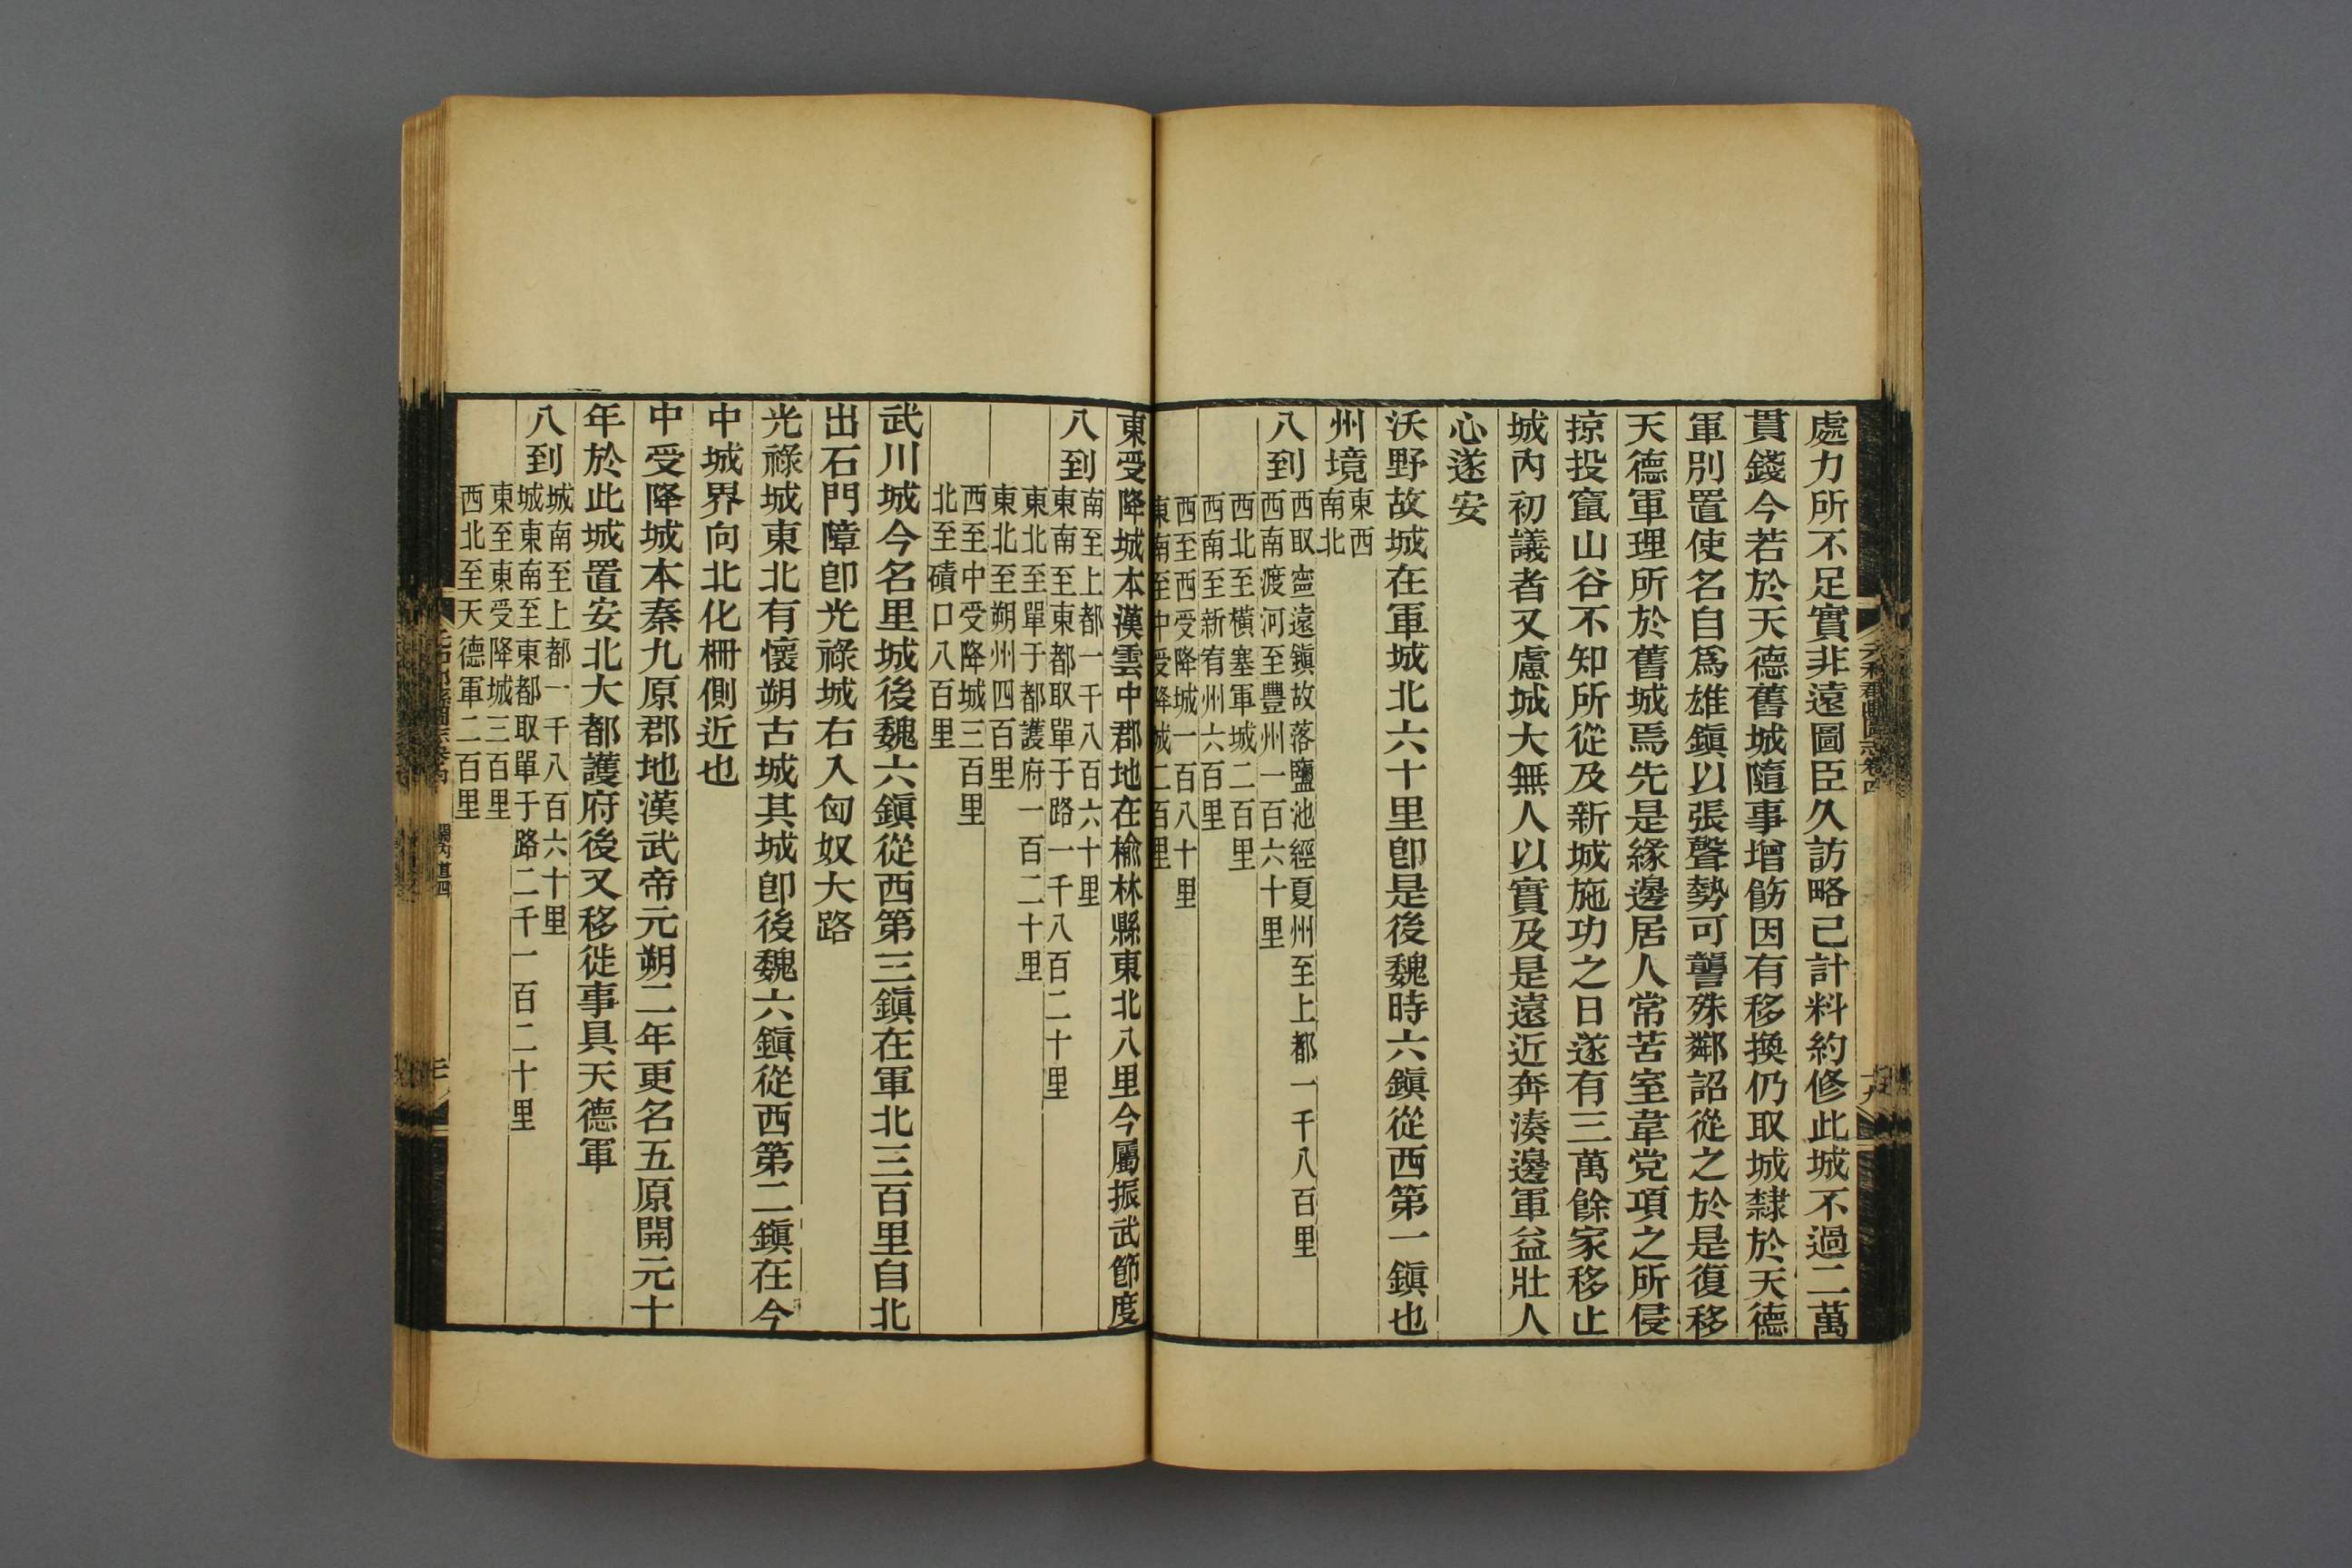 處力所不足實非遠圖臣久訪略已計料約修此城不過二萬
貫錢今若於天德舊城隨事增飾因有移換仍取城隸於天德
軍別置使名自爲雄鎭以張聲勢可讋殊鄰詔從之於是復移
天德軍理所於舊城焉先是緣邊居人常苦室韋党項之所侵
掠投竄山谷不知所從及新城施功之日遂有三萬餘家移止
城內初議者又慮城大無人以實及是遠近奔湊邊軍益壯人
心遂安
沃野故城在軍城北六十里卽是後魏時六鎭從西第一鎭也
州境
東西
南北
八到
西取寧遠鎭故落鹽池經夏州至上都一千八百里
西南渡河至豐州一百六十里
西北至橫塞軍城二百里
西南至新宥州六百里
西至西受降城一百八十里
東南至中受降城二百里
東受降城本漢雲中郡地在榆林縣東北八里今屬振武節度
八到
南至上都一千八百六十里
東南至東都取單于路一千八百二十里
東北至單于都護府一百二十里
東北至朔州四百里
西至中受降城三百里
北至磧口八百里
武川城今名里城後魏六鎭從西第三鎭在軍北三百里自北
出石門障卽光祿城右入匈奴大路
光祿城東北有懷朔古城其城卽後魏六鎭從西第二鎭在今
中城界向北化柵側近也
中受降城本秦九原郡地漢武帝元朔二年更名五原開元十
年於此城置安北大都護府後又移徙事具天德軍
八到
城南至上都一千八百六十里
城東南至東都取單于路二千一百二十里
東至東受降城三百里
西北至天德軍二百里